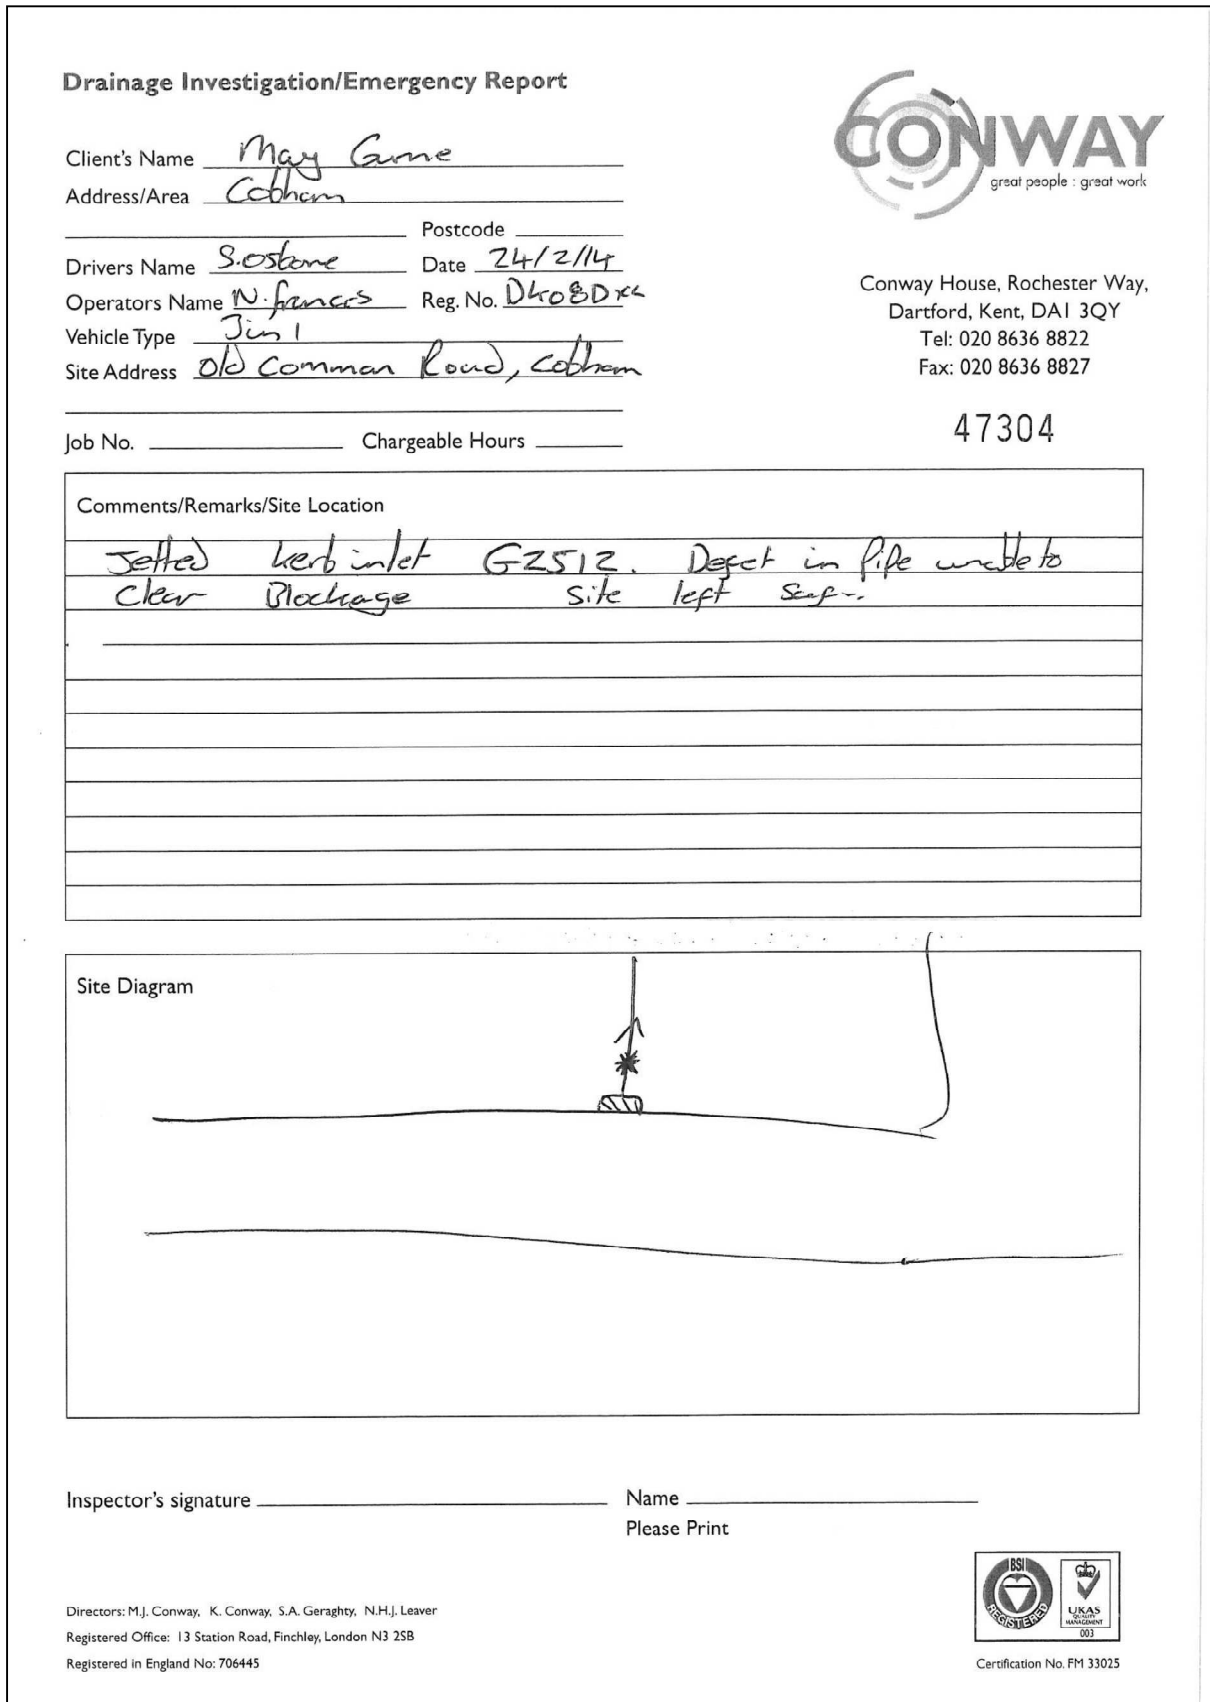 Drainage Investigation/Emergency Report
CONWAY
great people : great work
Client's Name May Gurne
Address/Area Cobham
Postcode
Drivers Name S.osborne Date 24/2/14
Operators Name N. frances Reg. No.
Vehicle Type 3in 1
Site Address Old Common Road, Cobham
Conway House, Rochester Way,
Dartford, Kent, DA1 3QY
Tel: 020 8636 8822
Fax: 020 8636 8827
Job No. Chargeable Hours
47304
Comments/Remarks/Site Location
Jetted kerb inlet G2512. Defect in Pipe unable to
Clear Blockage Site left
Site Diagram
Inspector's signature Name
Please Print
Directors: M.J. Conway, K. Conway, S.A. Geraghty, N.H.J. Leaver
Registered Office: 13 Station Road, Finchley, London N3 2SB
Registered in England No: 706445
BSI
REGISTERED
UKAS
QUALITY
MANAGEMENT
003
Certification No. FM 33025